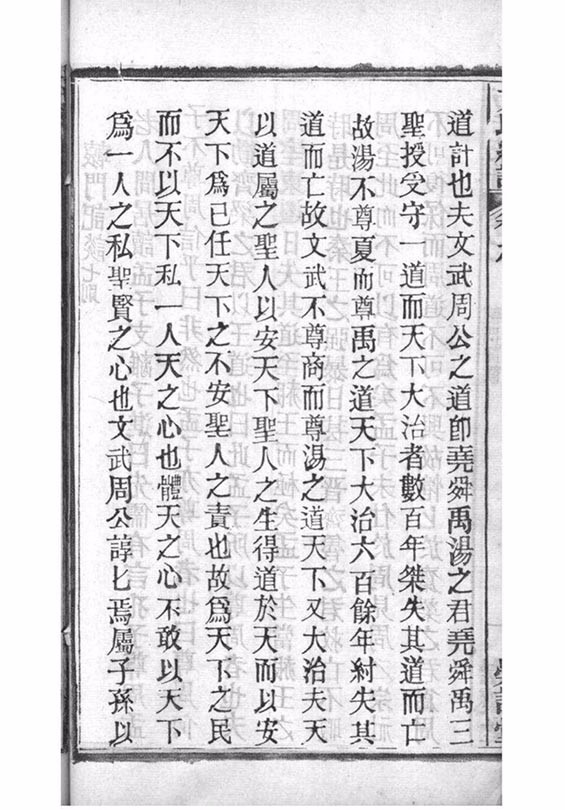 道計也夫文武周公之道卽堯舜禹湯之君堯舜禹三
聖授受守一道而天下大治者數百年桀失其道而亡
故湯不尊夏而尊禹之道天下大治六百餘年紂失其
道而亡故文武不尊商而尊湯之道天下又大治夫天
以道屬之聖人以安天下聖人之生得道於天而以安
天下爲已任天下之不安聖人之責也故爲天下之民
而不以天下私一人天之心也體天之心不敢以天下
爲一人之私聖賢之心也文武周公諄匕焉屬子孫以